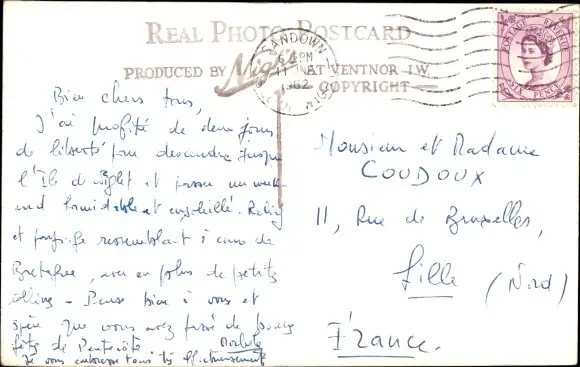 REAL PHOTO POSTCARD
PRODUCED BY Nigh AT VENTNOR I.W.
COPYRIGHT
SANDOWN
PM
1962
ISLE OF WIGHT
POSTAGE REVENUE
SIX PENCE
Bien chers tous,
J'ai profité de deux jours
de liberté pour descendre jusque
l'Ile de Wight et passer un week-
end formidable et ensoleillé.
et paysage ressemblant à ceux de
Bretagne, avec en plus de petites
collines - Pense bien à vous et
espère que vous avez passé de bonnes
fêtes de Pentecôte
Je vous embrasse tous très affectueusement
Monsieur et Madame
COUDOUX
11, Rue de Bruxelles,
Lille (Nord)
France.